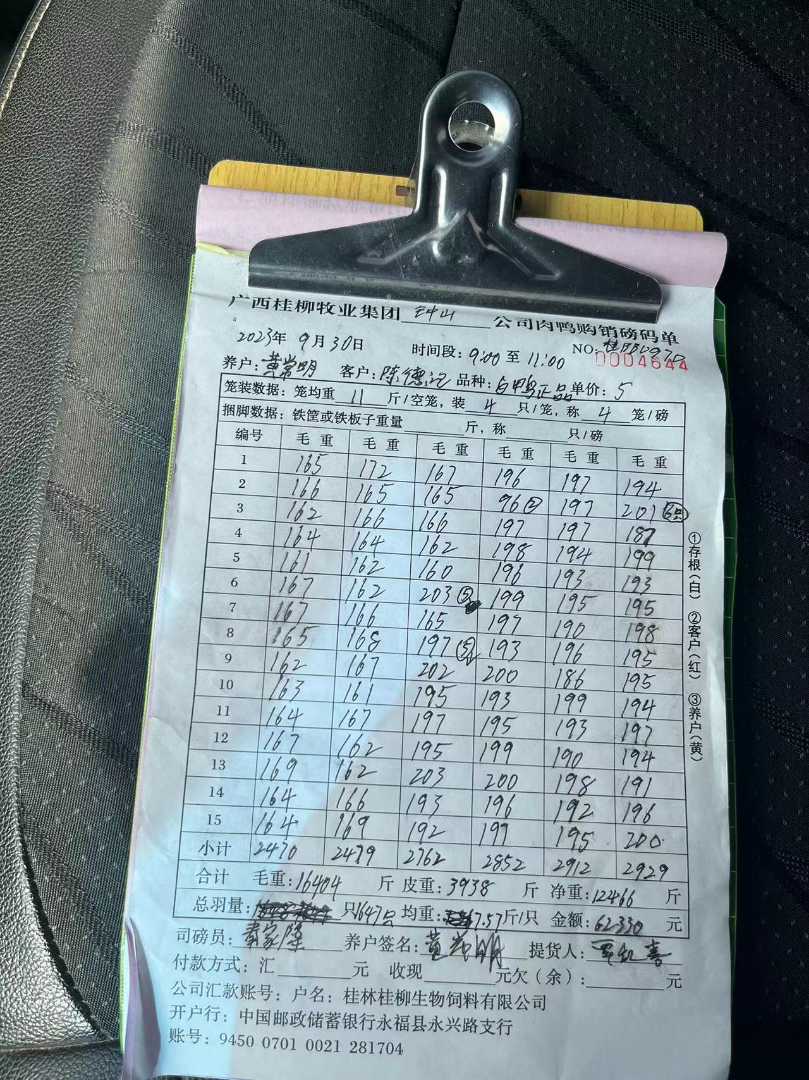 广西桂柳牧业集团 钟山 公司肉鸭购销磅码单
2023年 9月30日 时间段: 9:00 至 11:00 NO: 0004644
养户: 黄常明 客户: 陈德记 品种: 白鸭正品 单价: 5
笼装数据: 笼均重 11 斤/空笼, 装 4 只/笼, 称 4 笼/磅
捆脚数据: 铁筐或铁板子重量 斤, 称 只/磅
编号 毛 重 毛 重 毛 重 毛 重 毛 重 毛 重
1 165 172 167 196 197 194
2 166 165 165 96② 197 201
3 162 166 166 197 197 187
4 164 164 162 198 194 199
5 161 162 160 196 193 193
6 167 162 203⑤ 199 195 195
7 167 166 165 197 190 198
8 165 168 197⑤ 193 196 195
9 162 167 202 200 186 195
10 163 161 195 193 199 194
11 164 167 197 195 193 197
12 167 162 195 199 190 194
13 169 162 203 200 198 191
14 164 166 193 196 192 196
15 164 169 192 199 195 200
小计 2470 2479 2762 2852 2912 2929
合计 毛重: 16404 斤 皮重: 3938 斤 净重: 12466 斤
总羽量: 只1647只 均重: 7.57斤/只 金额: 62330 元
司磅员: 养户签名: 黄常明 提货人:
付款方式: 汇 元 收现 元欠(余): 元
公司汇款账号: 户名: 桂林桂柳生物饲料有限公司
开户行: 中国邮政储蓄银行永福县永兴路支行
账号: 9450 0701 0021 281704
①存根(白) ②客户(红) ③养户(黄)